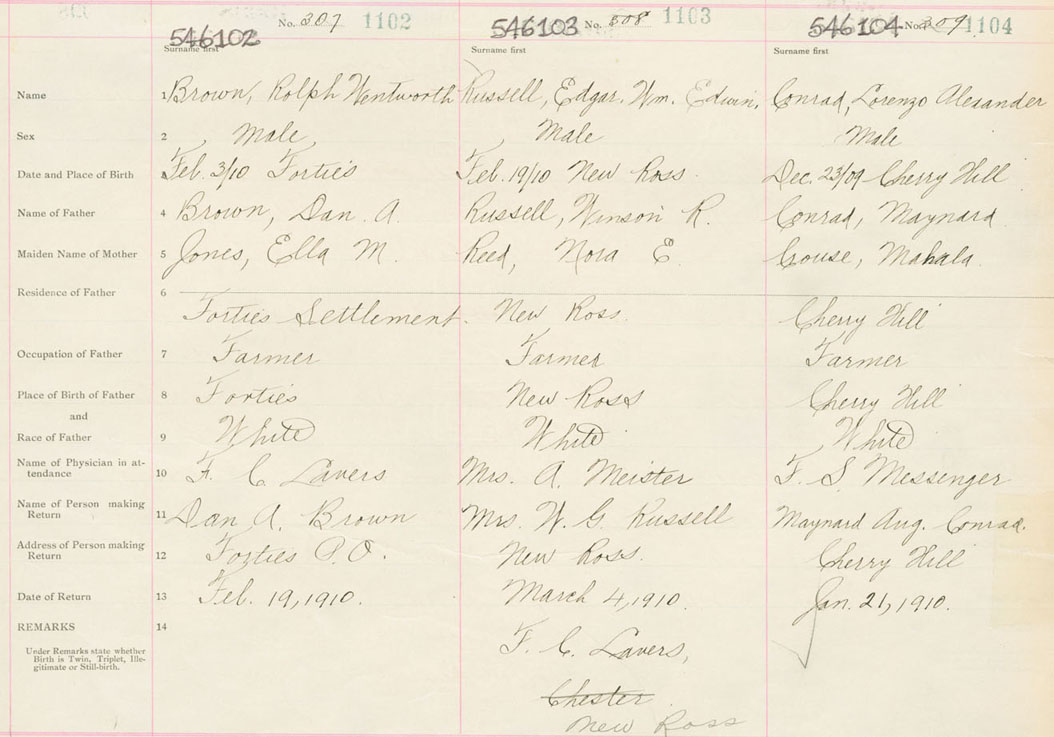 No. 307 1102 No. 308 1103 No. 309 1104
546102 546103 546104
Surname first Surname first Surname first
Name 1 Brown, Rolph Wentworth Russell, Edgar. Wm. Edwin, Conrad, Lorenzo Alexander
Sex 2 Male Male Male
Date and Place of Birth 3 Feb. 3/10 Forties Feb. 19/10 New Ross. Dec. 23/09 Cherry Hill
Name of Father 4 Brown, Dan. A. Russell, Winson R. Conrad, Maynard
Maiden Name of Mother 5 Jones, Ella M. Reed, Nora E Crouse, Mahala.
Residence of Father 6
Forties Settlement. New Ross. Cherry Hill
Occupation of Father 7 Farmer Farmer Farmer
Place of Birth of Father 8 Forties New Ross Cherry Hill
and
Race of Father 9 White White White
Name of Physician in at-
tendance 10 F. C Lavers Mrs. A. Meister F. S Messenger
Name of Person making
Return 11 Dan A. Brown Mrs. W. G. Russell Maynard Aug. Conrad.
Address of Person making
Return 12 Forties P.O. New Ross. Cherry Hill
Date of Return 13 Feb. 19, 1910. March 4, 1910. Jan. 21, 1910.
REMARKS 14
Under Remarks state whether
Birth is Twin, Triplet, Ille-
gitimate or Still-birth.
F. C. Lavers,
Chester
New Ross